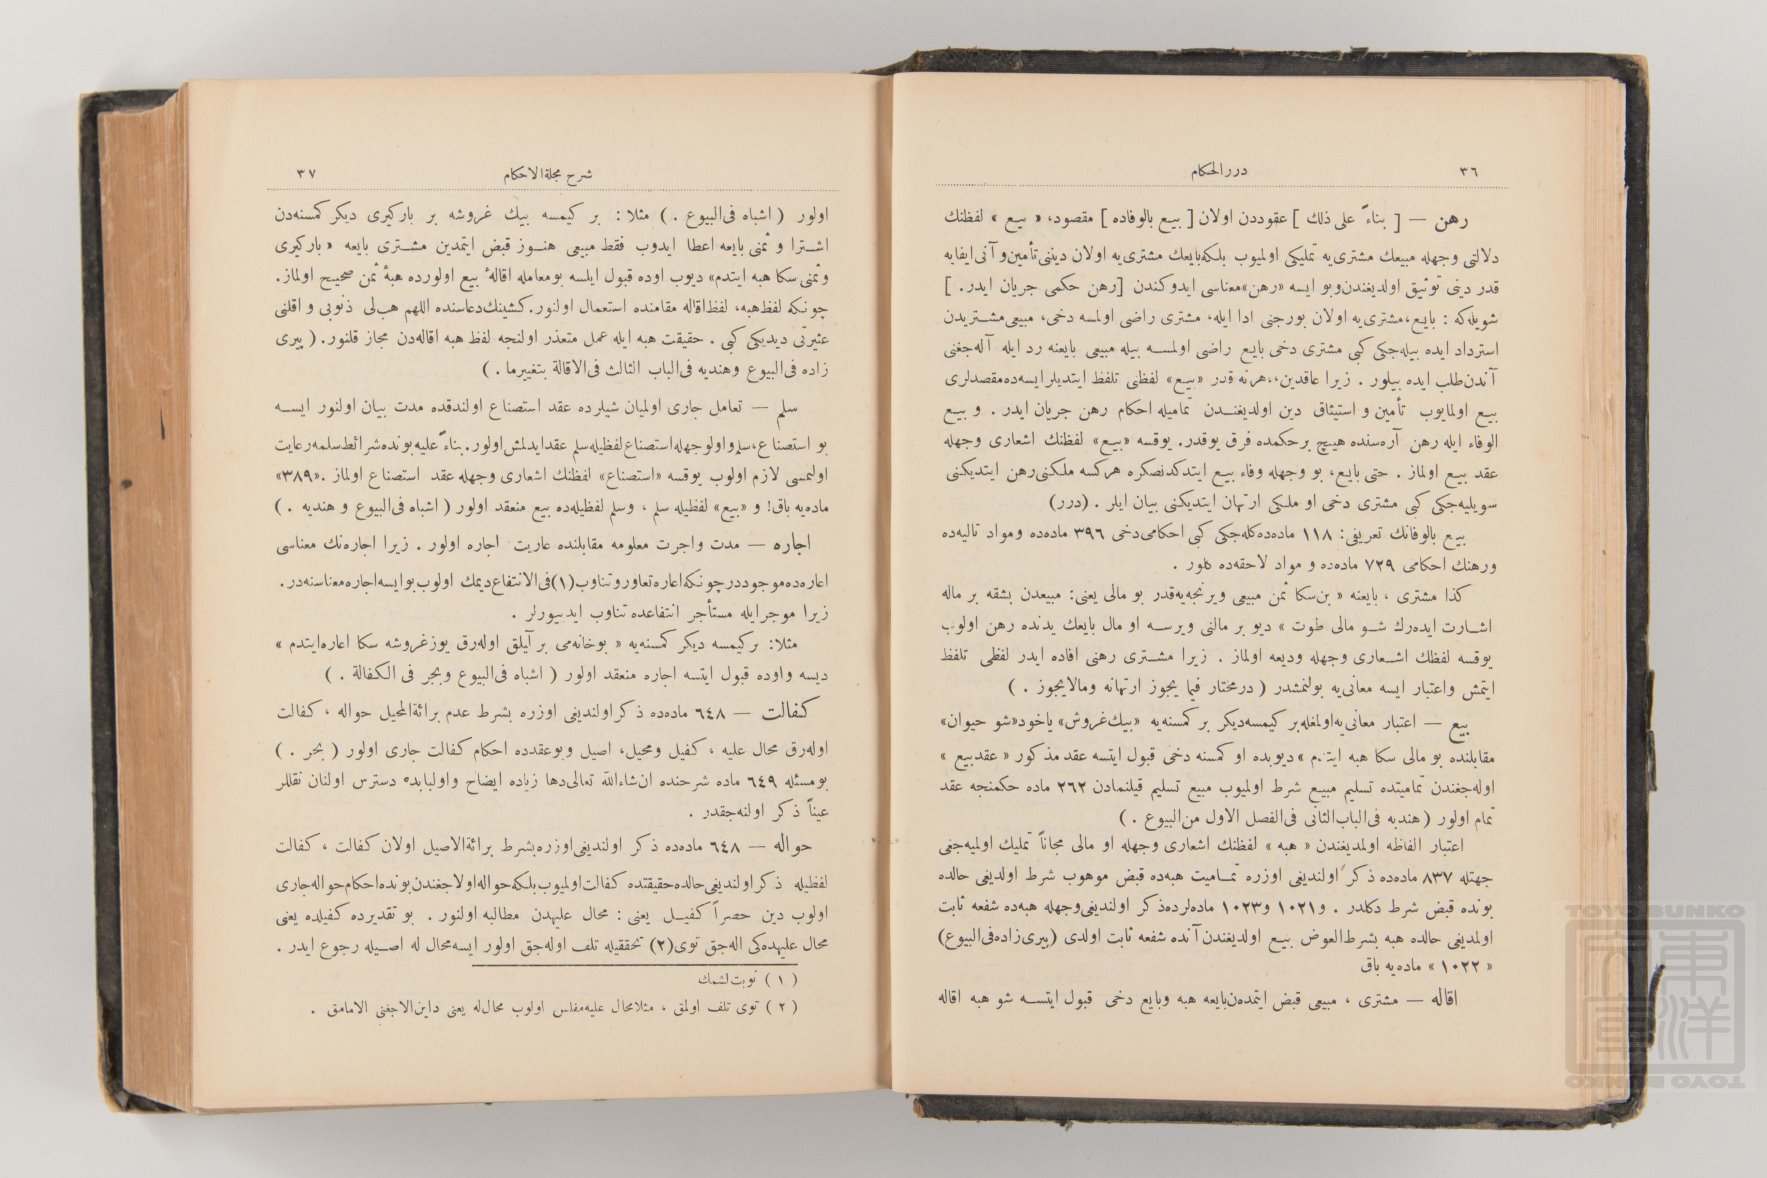 ٣٦
دررالحكام
رهن — [ بناءً على ذلك ] عقوددن اولان [ بيع بالوفاده ] مقصود، « بيع » لفظنك
دلالتى وجهله مبيعك مشترى‌يه تمليكى اولميوب بلكه‌بايعك مشترى‌يه اولان دينى‌تأمين‌و آنى‌ايفايه
قدر دينى توثيق اولديغندن‌وبو ايسه «رهن»معناسى ايدوكندن [رهن حكمى جريان ايدر. ]
شويله‌كه : بايع،مشترى‌يه اولان بورجنى ادا ايله، مشترى راضى اولمسه دخى، مبيعى‌مشتريدن
استرداد ايده بيله‌جكى كبى مشترى دخى بايع راضى اولمسه بيله مبيعى بايعنه رد ايله آله‌جغنى
آندن‌طلب ايده بيلور . زيرا عاقدين،هرنه قدر «بيع» لفظنى تلفظ ايتديلرايسه‌ده‌مقصدلرى
بيع اولمايوب تأمين و استيثاق دين اولديغندن تماميله احكام رهن جريان ايدر . و بيع
الوفاء ايله رهن آره‌سنده هيچ برحكمده فرق يوقدر. يوقسه «بيع» لفظنك اشعارى وجهله
عقد بيع اولماز . حتى بايع، بو وجهله وفاء بيع ايتدكدنصكره هركسه ملكنى‌رهن ايتديكنى
سويليه‌جكى كبى مشترى دخى او ملكى ارتهان ايتديكنى بيان ايلر . (درر)
بيع بالوفانك تعريفى: ١١٨ ماده‌ده‌كله‌جكى كبى احكامى‌دخى ٣٩٦ ماده‌ده ومواد تاليه‌ده
ورهنك احكامى ٧٢٩ ماده‌ده و مواد لاحقه‌ده كلور .
كذا مشترى ، بايعنه « بن‌سكا ثمن مبيعى ويرنجه‌يه‌قدر بو مالى يعنى: مبيعدن بشقه بر ماله
اشارت ايده‌رك شو مالى طوت » ديو بر مالنى ويرسه او مال بايعك يدنده رهن اولوب
يوقسه لفظك اشعارى وجهله وديعه اولماز . زيرا مشترى رهنى افاده ايدر لفظى تلفظ
ايتمش واعتبار ايسه معانى‌يه بولنمشدر ( درمختار فيما يجوز ارتهانه ومالايجوز . )
بيع — اعتبار معانى‌يه‌اولمغله‌بر كيمسه‌ديكر بر كمسنه‌يه «بيك‌غروش» ياخود«شو حيوان»
مقابلنده بو مالى سكا هبه ايتدم »ديوبده او كمسنه دخى قبول ايتسه عقد مذكور « عقدبيع »
اوله‌جغندن تماميتده تسليم مبيع شرط اولميوب مبيع تسليم قيلنمادن ٢٦٢ ماده حكمنجه عقد
تمام اولور (هنديه فى‌الباب‌الثانى فى‌الفصل الاول من‌البيوع . )
اعتبار الفاظه اولمديغندن « هبه » لفظنك اشعارى وجهله او مالى مجاناً تمليك اولميه‌جغى
جهتله ٨٣٧ ماده‌ده ذكر اولنديغى اوزره تماميت هبه‌ده قبض موهوب شرط اولديغى حالده
بونده قبض شرط دكلدر . و١٠٢١ و١٠٢٣ ماده‌لرده‌ذكر اولنديغى‌وجهله هبه‌ده شفعه ثابت
اولمديغى حالده هبه بشرط‌العوض بيع اولديغندن آنده شفعه ثابت اولدى (پيرى‌زاده‌فى‌البيوع)
« ١٠٢٢ » ماده‌يه باق
اقاله — مشترى ، مبيعى قبض ايتمه‌دن‌بايعه هبه وبايع دخى قبول ايتسه شو هبه اقاله
شرح مجلةالاحكام
٣٧
اولور ( اشباه فى‌البيوع . ) مثلا : بر كيمسه بيك غروشه بر باركيرى ديكر كمسنه‌دن
اشترا و ثمنى بايعه اعطا ايدوب فقط مبيعى هنوز قبض ايتمدين مشترى بايعه « باركيرى
و ثمنى سكا هبه ايتدم» ديوب اوده قبول ايلسه بومعامله اقالۀ بيع اولورده هبۀ ثمن صحيح اولماز.
چونكه لفظ هبه، لفظ‌اقاله مقامنده استعمال اولنور. كشينك‌دعاسنده اللهم هب‌لى ذنوبى و اقلنى
عثيرتى ديديكى كبى . حقيقت هبه ايله عمل متعذر اولنجه لفظ هبه اقاله‌دن مجاز قلنور. ( پيرى
زاده فى‌البيوع وهنديه فى‌الباب الثالث فى‌الاقالة بتغييرما . )
سلم — تعامل جارى اولميان شيلرده عقد استصناع اولندقده مدت بيان اولنور ايسه
بو استصناع،سلم‌واولوجهله‌استصناع لفظيله‌سلم عقدايدلمش‌اولور.بناءً عليه‌بونده‌شرائط‌سلمه‌رعايت
اولنمسى لازم اولوب يوقسه «استصناع» لفظنك اشعارى وجهله عقد استصناع اولماز .«٣٨٩»
ماده‌يه باق! و «بيع» لفظيله سلم ، وسلم لفظيله‌ده بيع منعقد اولور ( اشباه فى‌البيوع و هنديه . )
اجاره — مدت واجرت معلومه مقابلنده عاريت اجاره اولور . زيرا اجاره‌نك معناسى
اعاره‌ده‌موجوددرچونكه‌اعاره‌تعاورو‌تناوب(١)فى‌الانتفاع‌ديمك اولوب‌بوايسه‌اجاره‌معناسنه‌در.
زيرا موجرايله مستأجر انتفاعده تناوب ايديبورلر .
مثلا: بركيمسه ديكر كمسنه‌يه « بوخانه‌مى بر آيلق اوله‌رق يوزغروشه سكا اعاره‌ايتدم »
ديسه واوده قبول ايتسه اجاره منعقد اولور ( اشباه فى‌البيوع وبحر فى الكفالة . )
كفالت — ٦٤٨ ماده‌ده ذكراولنديغى اوزره بشرط عدم برائةالمحيل حواله ، كفالت
اوله‌رق محال عليه ، كفيل ومحيل، اصيل وبوعقدده احكام كفالت جارى اولور ( بحر . )
بومسئله ٦٤٩ ماده شرحنده ان‌شاءالله تعالى‌دها زياده ايضاح واولبابده دسترس اولنان نقللر
عيناً ذكر اولنه‌جقدر .
حواله — ٦٤٨ ماده‌ده ذكر اولنديغى‌اوزره‌بشرط برائةالاصيل اولان كفالت ، كفالت
لفظيله ذكراولنديغى‌حالده‌حقيقتده كفالت‌اولميوب‌بلكه‌حواله‌اولاجغندن‌بونده‌احكام‌حواله‌جارى
اولوب دين حصراً كفيل يعنى : محال عليهدن مطالبه اولنور . بو تقديرده كفيلده يعنى
محال عليهده‌كى اله‌جق توى(٢) تحققيله تلف اوله‌جق اولور ايسه‌محال له اصيله رجوع ايدر .
( ١ ) نوبت‌لشمك
( ٢ ) توى تلف اولمق ، مثلامحال عليه‌مفلس اولوب محال‌له يعنى داين‌آلاجغنى آلامامق .
TOYO BUNKO
東洋文庫
TOYO BUNKO